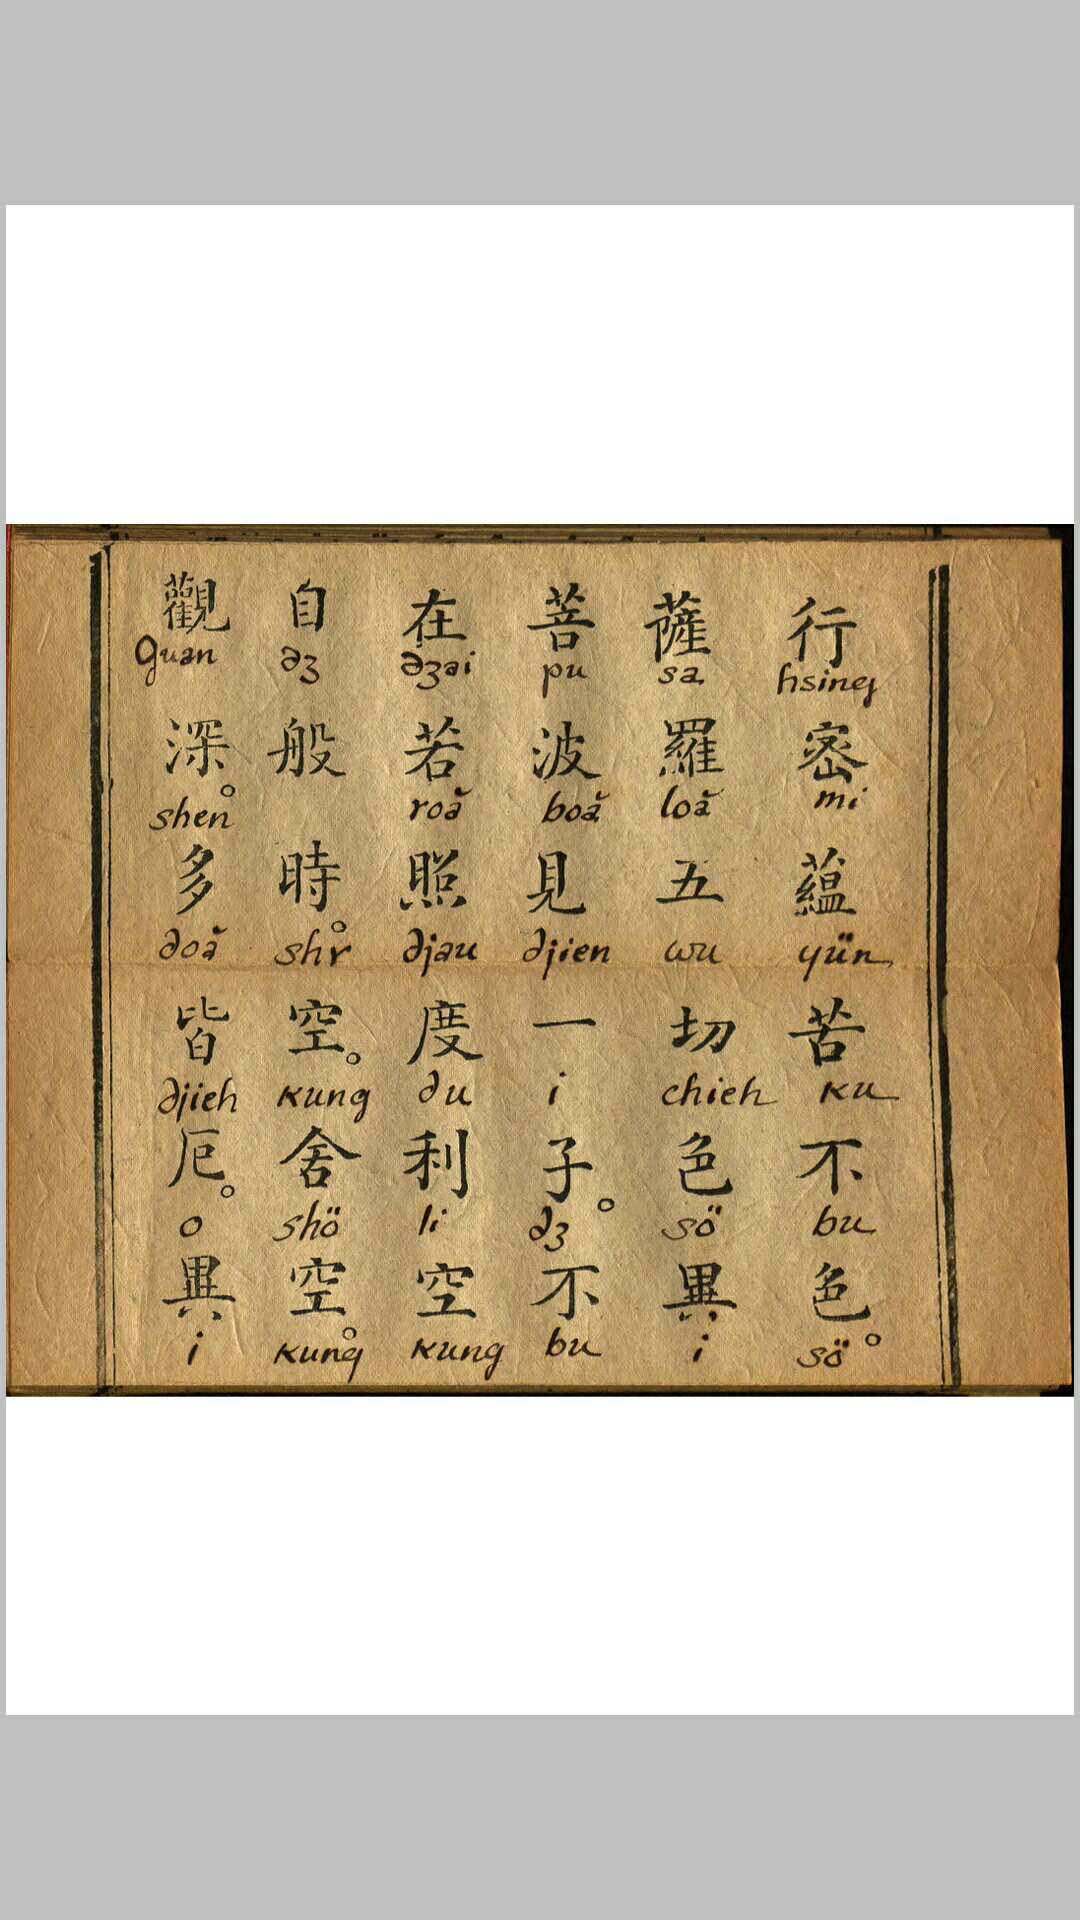 觀 自 在 菩 薩 行
guan dz dzai pu sa hsing
深。 般 若 波 羅 宻
shen roă boă loă mi
多 時。 照 見 五 蘊
doă shr djau djien wu yün
皆 空。 度 一 切 苦
djieh kung du i chieh ku
厄。 舍 利 子。 色 不
o shö li dz sö bu
異 空。 空 不 異 色。
i kung kung bu i sö